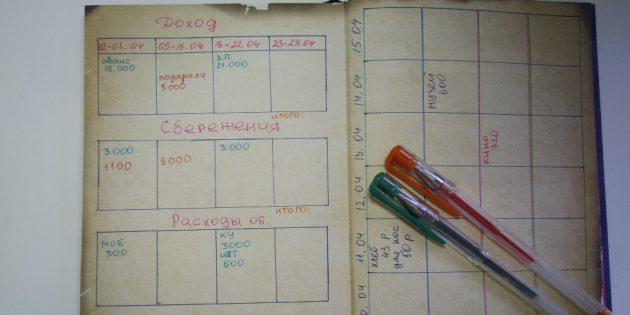 Доход
02-08.04 09-15.04 16-22.04 23-29.04
аванс
15.000
подарили
5000
З.П.
21.000
итого:
Сбережения
3000
1100
5000
3.000
итого:
Расходы об.
МОБ
300
КУ
3000
600
15.04
14.04
музей
600
13.04
кино
720
12.04
11.04
хлеб
43 р
50 р